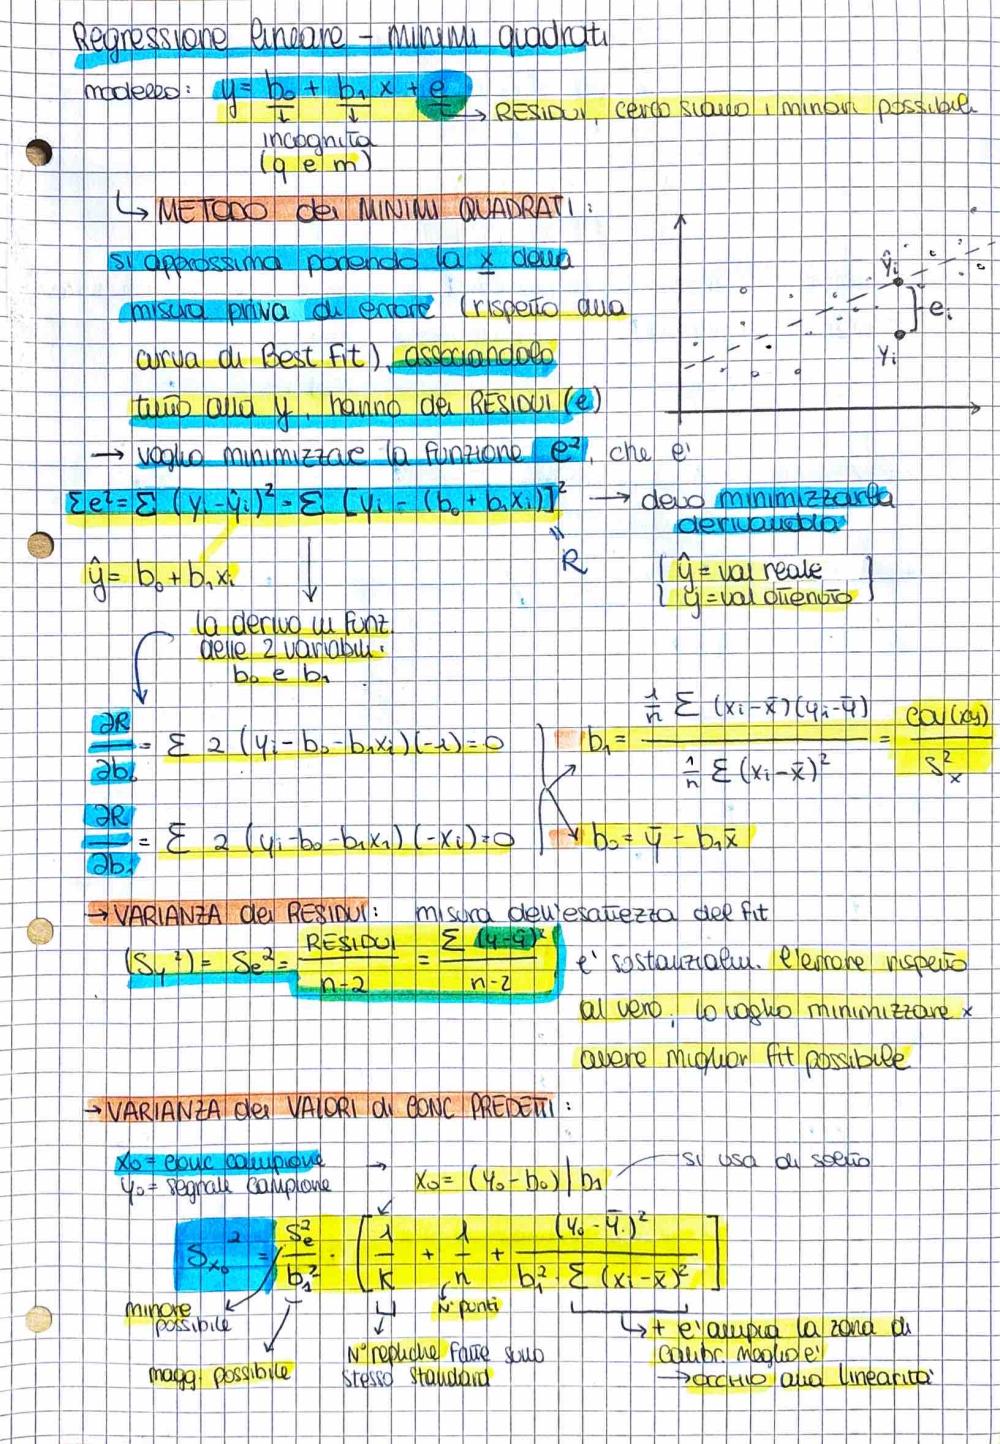 Regressione lineare - minimi quadrati
modello: y = b₀ + b₁ x + e
→ RESIDUI, cerco siano i minori possibile
incognita
(q e m)
↳ METODO dei MINIMI QUADRATI:
si approssima ponendo la x della
misura priva di errore (rispetto alla
curva di Best Fit), associandolo
tutto alla y, hanno dei RESIDUI (e)
ŷi
ei
yi
→ voglio minimizzare la funzione e², che è
Σe² = Σ (yi-ŷi)² = Σ [yi - (b₀ + b₁xi)]² → devo minimizzarla
derivandola
" R
ŷ = b₀ + b₁xi
[ŷ = val reale
y = val ottenuto]
la derivo in funz.
delle 2 variabili:
b₀ e b₁
∂R/∂b₀ = Σ 2 (yi-b₀-b₁xi)(-1)=0
b₁ = 1/n Σ (xi-x̄)(yi-ȳ) / 1/n Σ (xi-x̄)² = cov(xy) / S²x
∂R/∂b₁ = Σ 2 (yi-b₀-b₁xi)(-xi)=0
b₀ = ȳ - b₁x̄
→ VARIANZA dei RESIDUI: misura dell'esattezza del fit
(Sy²) = Se² = RESIDUI / n-2 = Σ (y-ŷ)² / n-2
è sostanzialm. l'errore rispetto
al vero, lo voglio minimizzare x
avere miglior fit possibile
→ VARIANZA dei VALORI di CONC PREDETTI:
x₀ = conc campione → x₀ = (y₀ - b₀) / b₁
si usa di solito
y₀ = segnale campione
Sx₀² = Se²/b₁² · [1/K + 1/n + (y₀ - ȳ)² / b₁² · Σ (xi-x̄)²]
minore
possibile
magg. possibile
N° repliche fatte sullo
stesso standard
N° punti
↳ + è ampia la zona di
calibr. meglio è
→ occhio alla linearità